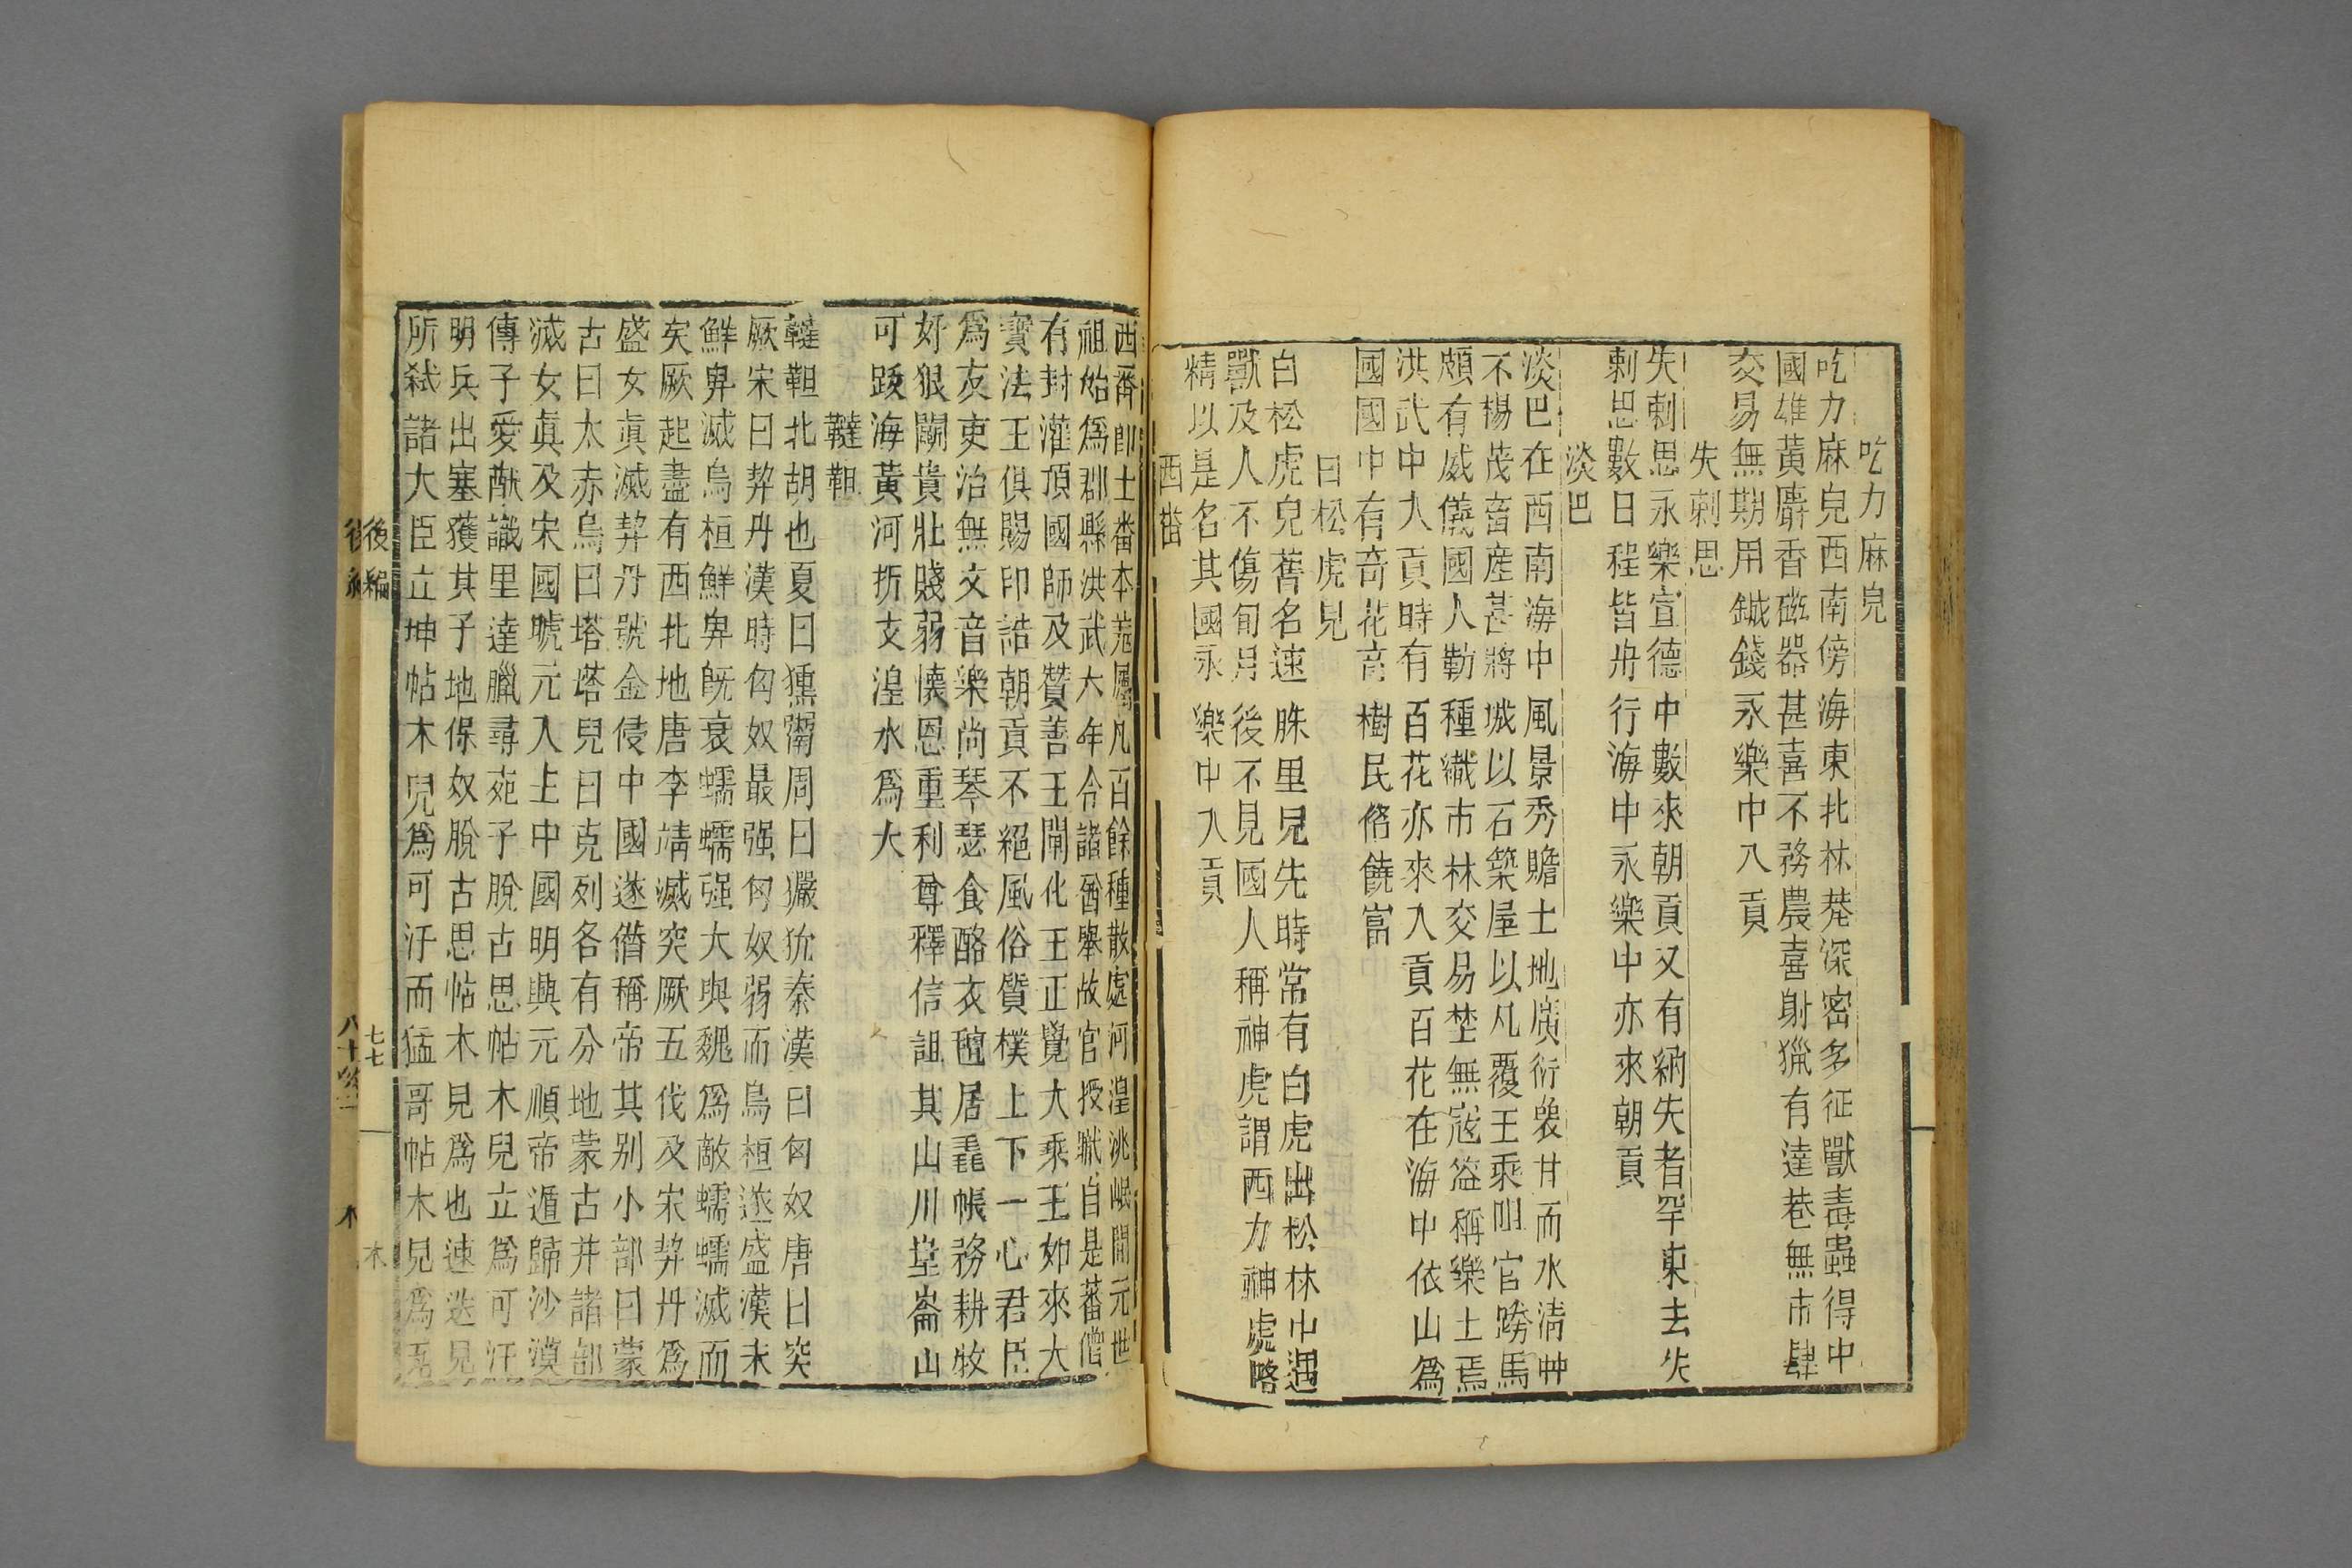 吃力麻兒
吃力麻兒西南傍海東北林莽深密多征獸毒蟲得中
國雄黃麝香磁器甚喜不務農喜射獵有達巷無市肆
交易無期用鐵錢永樂中入貢
失剌思
失剌思永樂宣德中數來朝貢又有納失者罕東去失
剌思數日程皆舟行海中永樂中亦來朝貢
淡巴
淡巴在西南海中風景秀贍土地廣衍㐮甘而水清艸
不楊茂畜産甚將城以石築屋以凡覆王乘呾官跨馬
頗有威儀國人勤種織市林交易埜無寇盜稱樂土焉
洪武中入貢時有百花亦來入貢百花在海中依山爲
國國中有奇花奇樹民俗饒富
日松虎兒
白松虎兒舊名速脒里兒先時常有白虎出松林中遇
獸及人不傷旬月後不見國人稱神虎謂西力神虎略
精以是名其國永樂中入貢
西番
西番卽土番本羗屬凡百餘種散處河湟洮岷間元世
祖始爲郡縣洪武大年合諸酋擧故官授職自是蕃僧
有封灌頂國師及贊善王闡化王正覺大乘王如來大
寶法王俱賜印誥朝貢不絕風俗質樸上下一心君臣
爲友吏治無文音樂尚琴瑟食酪衣氊居毳帳務耕牧
好狠鬭貴壯賤弱懐恩重利尊釋信詛其山川崑崙山
可跋海黃河折支湟水爲大
韃靼
韃靼北胡也夏曰獯鬻周曰玁狁秦漢曰匈奴唐曰突
厥宋曰契丹漢時匈奴最强匈奴弱而烏桓遂盛漢末
鮮卑滅烏桓鮮卑旣衰蠕蠕强大與魏爲敵蠕蠕滅而
矣厥起盡有西北地唐李靖滅突厥五伐及宋契丹爲
盛女真滅契丹號金侵中國遂僭稱帝其别小部曰蒙
古曰太赤烏曰塔塔兒曰克列各有分地蒙古并諸部
滅女眞及宋國號元入上中國明興元順帝遁歸沙漠
傳子愛猷識里達臘尋死子脫古思帖木兒立爲可汗
明兵出塞獲其子地保奴脫古思帖木見爲也速迭兒
所弑諸大臣立坤帖木兒爲可汗而猛哥帖木兒爲瓦
後編
七七
木